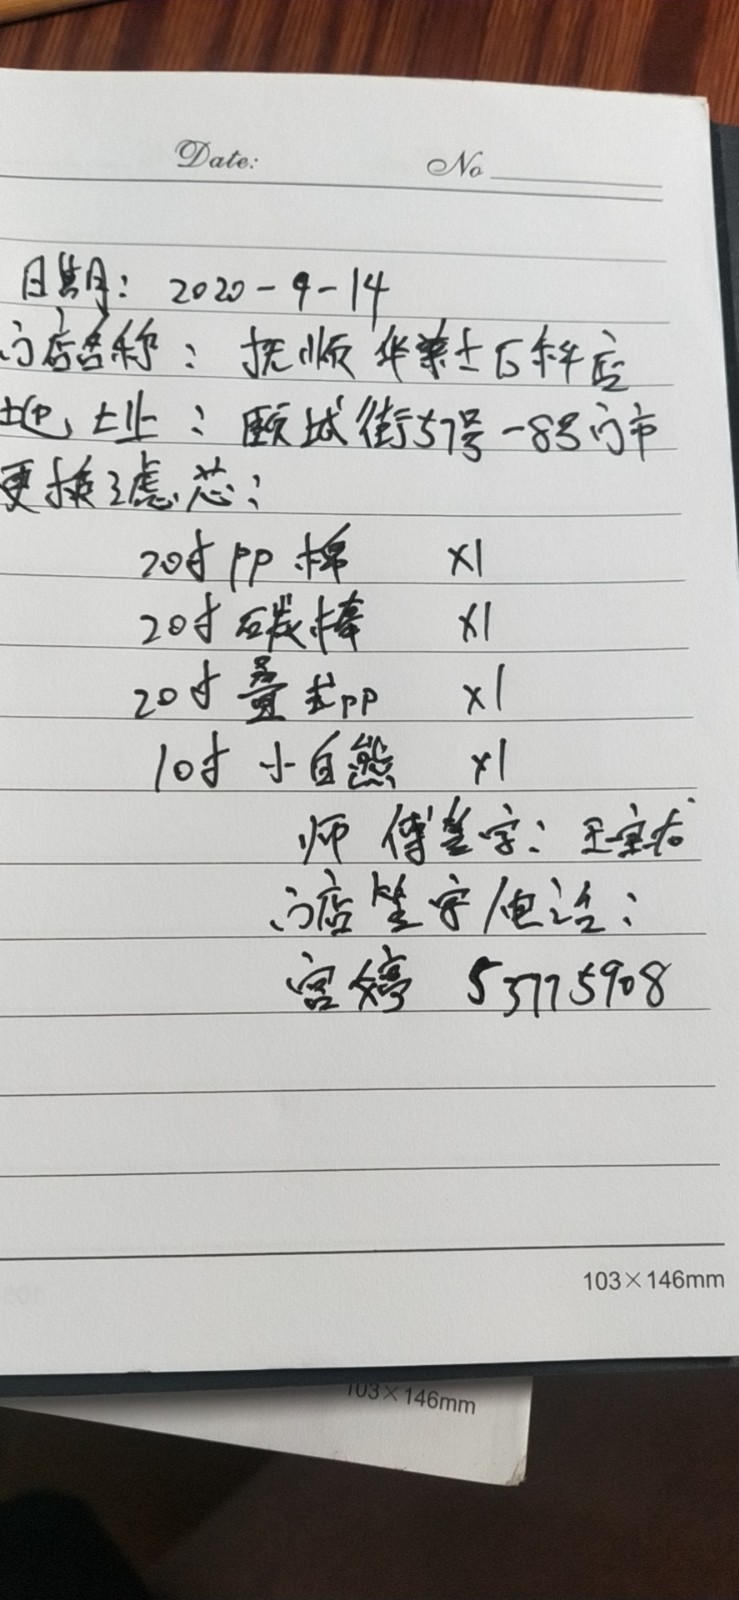 Date: No
日期: 2020-9-14
门店名称: 抚顺华莱士石科店
地址: 颐城街57号-8号门市
更换滤芯:
20寸pp棉 x1
20寸碳棒 x1
20寸叠式pp x1
10寸小白熊 x1
师傅签字: 王宝
门店签字/电话:
宫婷 53775908
103×146mm
103×146mm